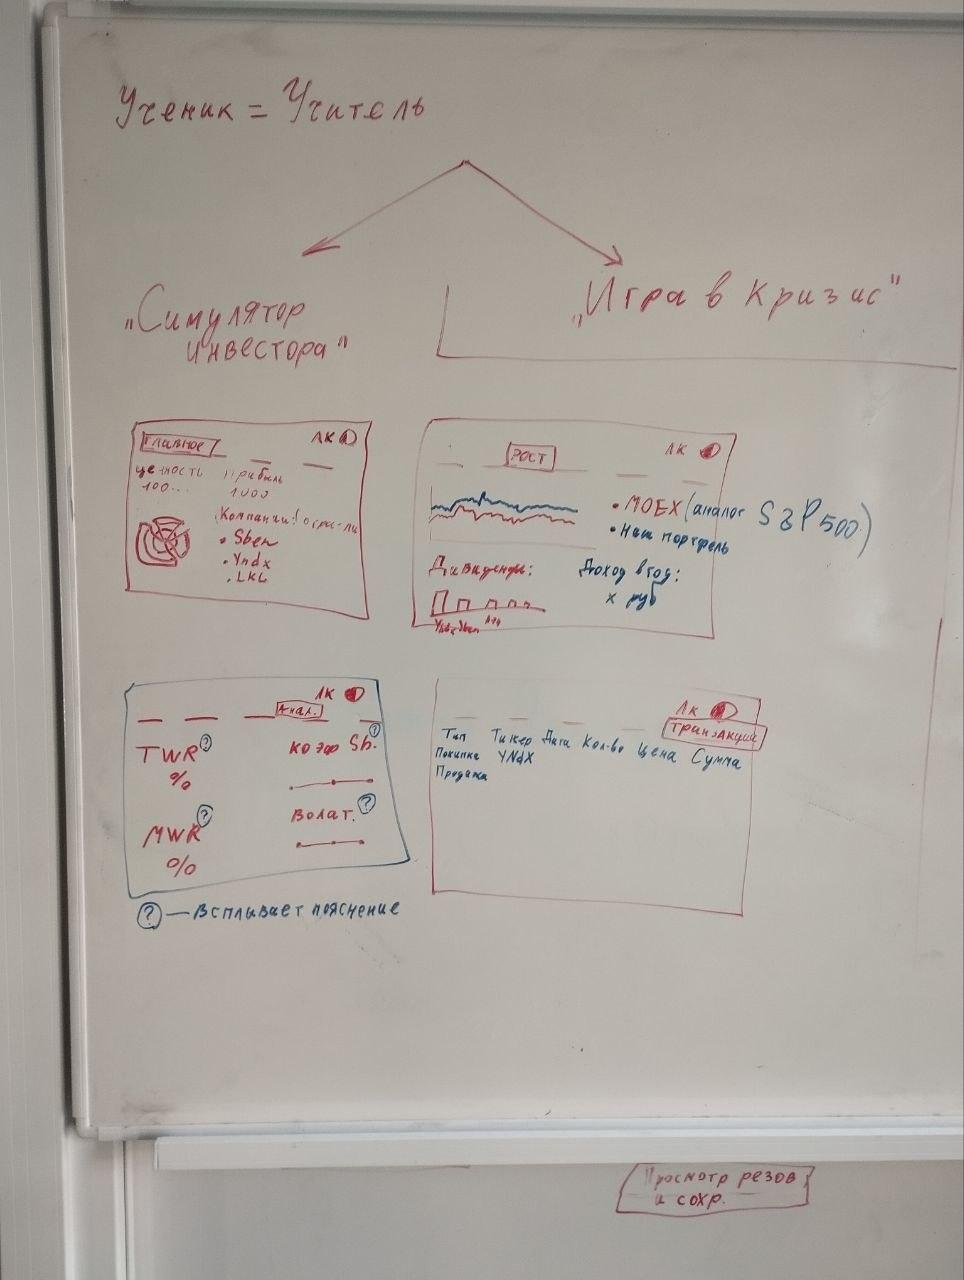 Ученик = Учитель
„Симулятор
инвестора"
„Игра в кризис"
Главное
ЛК
ценность
100...
Прибыль
1000
Компании:
• Sber
• Yndx
• LKL
РОСТ
ЛК
• MOEX (аналог S&P 500)
• Наш портфель
Дивиденды:
Доход в год:
x руб
ЛК
Анал.
TWR ?
%
коэф Sh. ?
MWR ?
%
Волат. ?
? — Всплывает пояснение
ЛК
Транзакции
Тип Тикер Дата Кол-во Цена Сумма
Покупка YNdX
Продажа
Просмотр резов
и сохр.